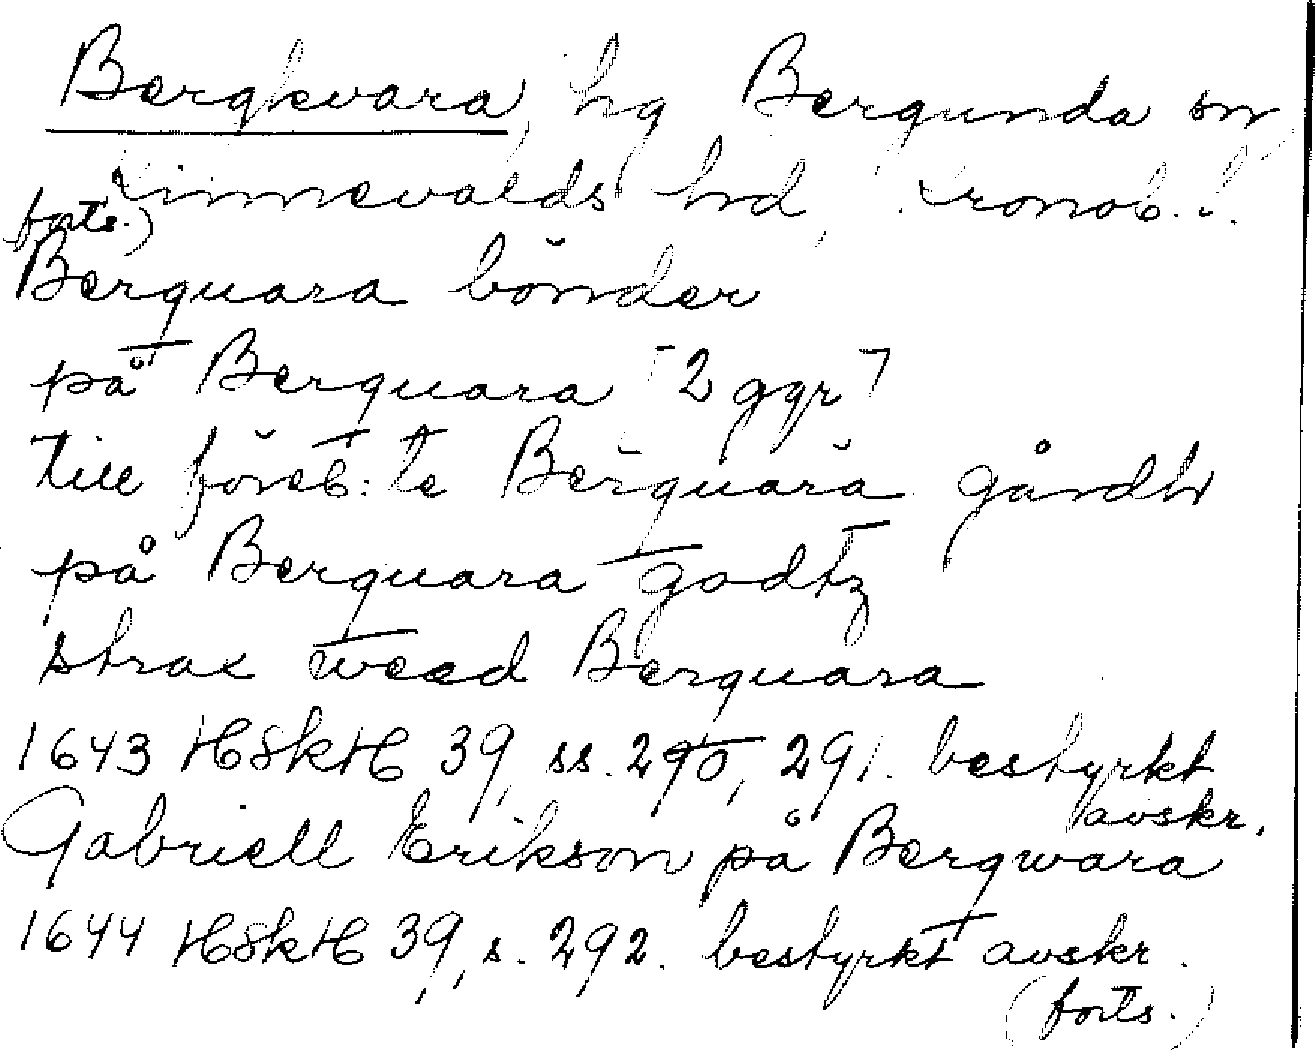 Bergkvara, hg Bergunda sn,
Kinnevalds hd, Kronob. l.
forts.)
Berquara bönder
på Berquara [2 ggr]
till föreb:te Berquara gårdh
på Berquara godtz
strax weed Berquara
1643 HSkH 39, ss. 290, 291. bestyrkt
avskr.
Gabriell Erikson på Bergwara
1644 HSkH 39, s. 292. bestyrkt avskr.
(forts.)